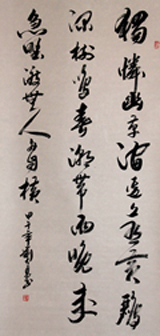 獨憐幽草澗邊生上有黃鸝
深樹鳴春潮帶雨晚來
急野渡無人舟自橫 甲午年